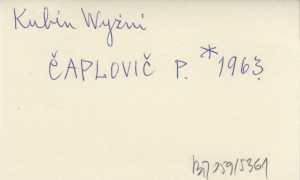 Kubín Wyżni
ČAPLOVIČ P. *1963.
259/5361